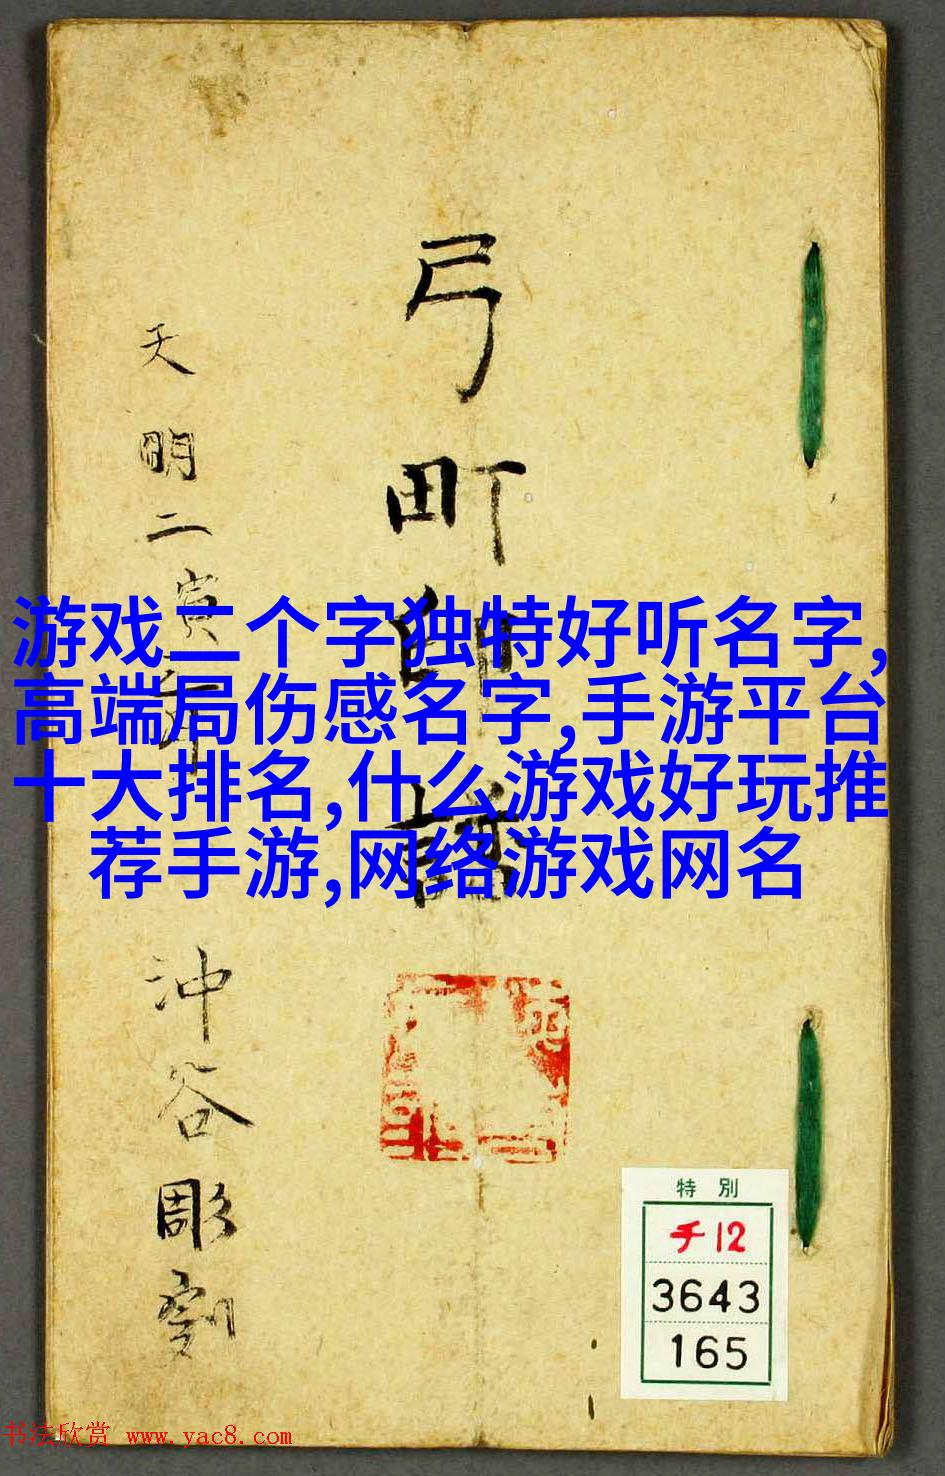 弓町印譜
天明二寅年
沖谷彫刻
游戏二个字独特好听名字,
高端局伤感名字,手游平台
十大排名,什么游戏好玩推
荐手游,网络游戏网名
特別
チ12
3643
165
书法欣赏 www.yac8.com